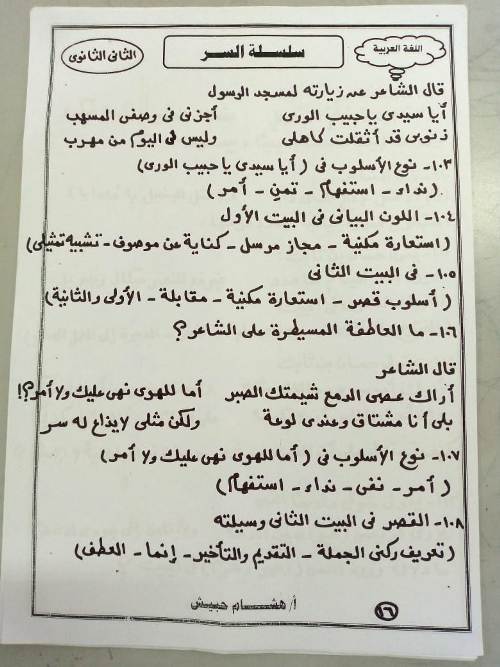 اللغة العربية
سلسلة السر
الثانى الثانوى
قال الشاعر عند زيارته لمسجد الرسول
أيا سيدى يا حبيب الورى أجزنى فى وصفى المسهب
ذنوبى قد أثقلت كاهلى وليس لى اليوم من مهرب
١٠٣- نوع الأسلوب فى ( أيا سيدى يا حبيب الورى)
(نداء - استفهام - تمنٍ - أمر )
١٠٤- اللون البيانى فى البيت الأول
( استعارة مكنية - مجاز مرسل - كناية عن موصوف - تشبيه تمثيلى)
١٠٥- فى البيت الثانى
( أسلوب قصر - استعارة مكنية - مقابلة - الأولى والثانية)
١٠٦- ما العاطفة المسيطرة على الشاعر؟
قال الشاعر
أراك عصى الدمع شيمتك الصبر أما للهوى نهى عليك ولا أمر؟!
بلى أنا مشتاق وعندى لوعة ولكن مثلى لا يذاع له سر
١٠٧- نوع الأسلوب فى ( أما للهوى نهى عليك ولا أمر)
( أمر - نفى - نداء - استفهام)
١٠٨- القصر فى البيت الثانى وسيلته
(تعريف ركنى الجملة - التقديم والتأخير - إنما - العطف)
أ/ هشام حبيش
١٦